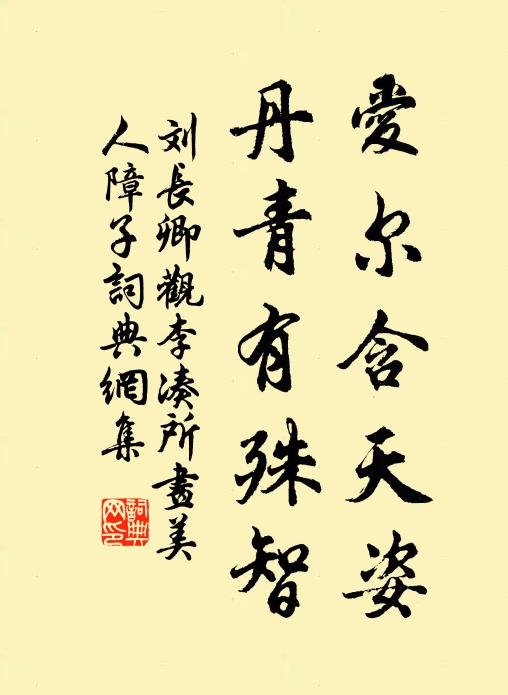 愛尔含天姿
丹青有殊智
刘長卿觀李凑所畫美
人障子詞典網集
詞典网印